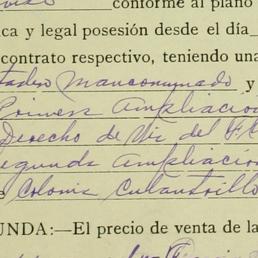 conforme al plano
ca y legal posesión desde el día
contrato respectivo, teniendo una
tadero Mancomunado y
Primera Ampliacion
Derecho de Via del F.C.
Segunda Ampliacion
e Colonia Culantrillo
UNDA:—El precio de venta de la